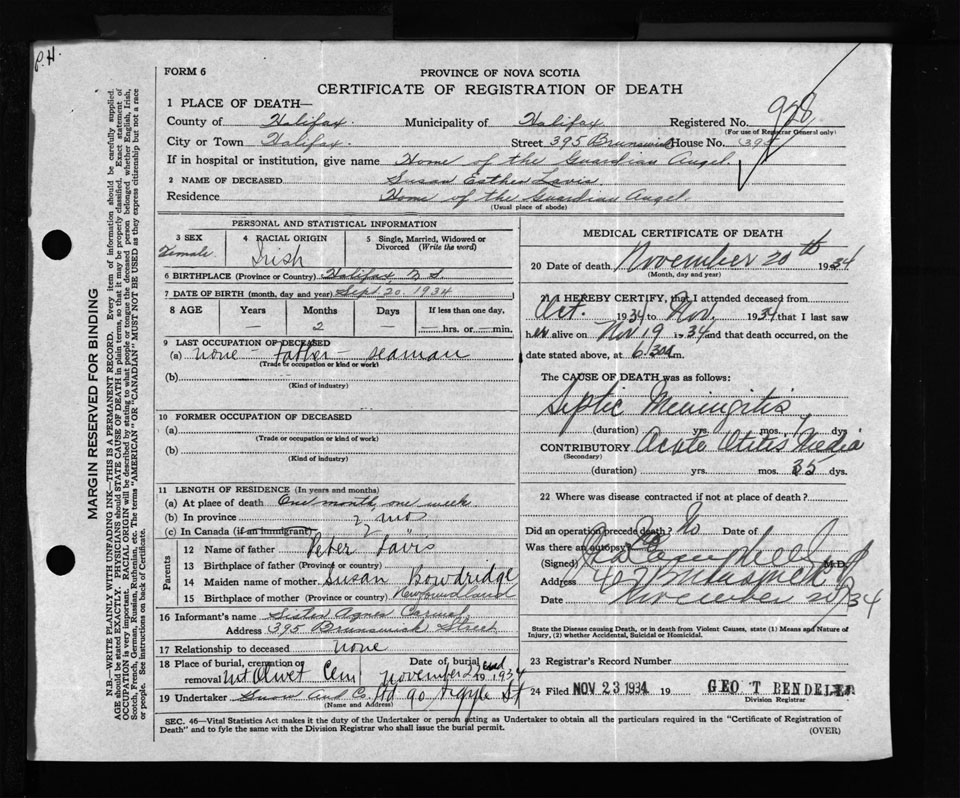 P.H.
FORM 6
PROVINCE OF NOVA SCOTIA
CERTIFICATE OF REGISTRATION OF DEATH
928
1 PLACE OF DEATH—
County of Halifax. Municipality of Halifax Registered No.
(For use of Registrar General only)
City or Town Halifax. Street 395 Brunswick House No. 395
If in hospital or institution, give name Home of the Guardian Angel.
2 NAME OF DECEASED Susan Esther Lavis.
Residence Home of the Guardian Angel.
(Usual place of abode)
PERSONAL AND STATISTICAL INFORMATION
3 SEX 4 RACIAL ORIGIN 5 Single, Married, Widowed or Divorced (Write the word)
Female Irish
6 BIRTHPLACE (Province or Country) Halifax N.S.
7 DATE OF BIRTH (month, day and year) Sept 20. 1934
8 AGE Years Months Days If less than one day,
— 2 — — hrs. or — min.
9 LAST OCCUPATION OF DECEASED
(a) none - father - seaman
(Trade or occupation or kind or work)
(b)
(Kind of industry)
10 FORMER OCCUPATION OF DECEASED
(a)
(Trade or occupation or kind of work)
(b)
(Kind of industry)
11 LENGTH OF RESIDENCE (In years and months)
(a) At place of death One month, one week
(b) In province 2 mo
(c) In Canada (if an immigrant) 2 "
Parents
12 Name of father Peter Lavis
13 Birthplace of father (Province or country)
14 Maiden name of mother Susan Bowdridge
15 Birthplace of mother (Province or country) Newfoundland
16 Informant's name Sister Agnes Carmel
Address 395 Brunswick Street
17 Relationship to deceased none
18 Place of burial, cremation or removal Mt Olivet Cem Date of burial November 22nd 1934
19 Undertaker Snow and Co. Ltd 90 Argyle St
(Name and Address)
MEDICAL CERTIFICATE OF DEATH
20 Date of death November 20th 1934
(Month, day and year)
21 I HEREBY CERTIFY, that I attended deceased from
Oct. 1934 to Nov. 1934 that I last saw
her alive on Nov 19 1934 and that death occurred, on
date stated above, at 6.30a m.
The CAUSE OF DEATH was as follows:
Septic Meningitis
(duration) yrs. mos. dys.
CONTRIBUTORY Acute Otitis Media
(Secondary)
(duration) yrs. mos. 35 dys.
22 Where was disease contracted if not at place of death?
Did an operation precede death? No Date of
Was there an autopsy?
(Signed) M.D.
Address
Date November 20/34
State the Disease causing Death, or in death from Violent Causes, state (1) Means and Nature of Injury, (2) whether Accidental, Suicidal or Homicidal.
23 Registrar's Record Number
24 Filed NOV 23 1934 19 GEO T BENDELIER
Division Registrar
SEC. 46—Vital Statistics Act makes it the duty of the Undertaker or person acting as Undertaker to obtain all the particulars required in the "Certificate of Registration of
Death" and to fyle the same with the Division Registrar who shall issue the burial permit.
(OVER)
MARGIN RESERVED FOR BINDING
N.B.—WRITE PLAINLY WITH UNFADING INK—THIS IS A PERMANENT RECORD. Every item of information should be carefully supplied.
AGE should be stated EXACTLY. PHYSICIANS should STATE CAUSE OF DEATH in plain terms, so that it may be properly classified. Exact statement of
OCCUPATION is very important. RACIAL ORIGIN will be described by stating to what people or tongue the deceased person belonged whether English, Irish,
Scotch, French, German, Russian, Ruthenian, etc. The terms "AMERICAN" OR "CANADIAN" MUST NOT BE USED as they express citizenship but not a race
or people. See instructions on back of Certificate.